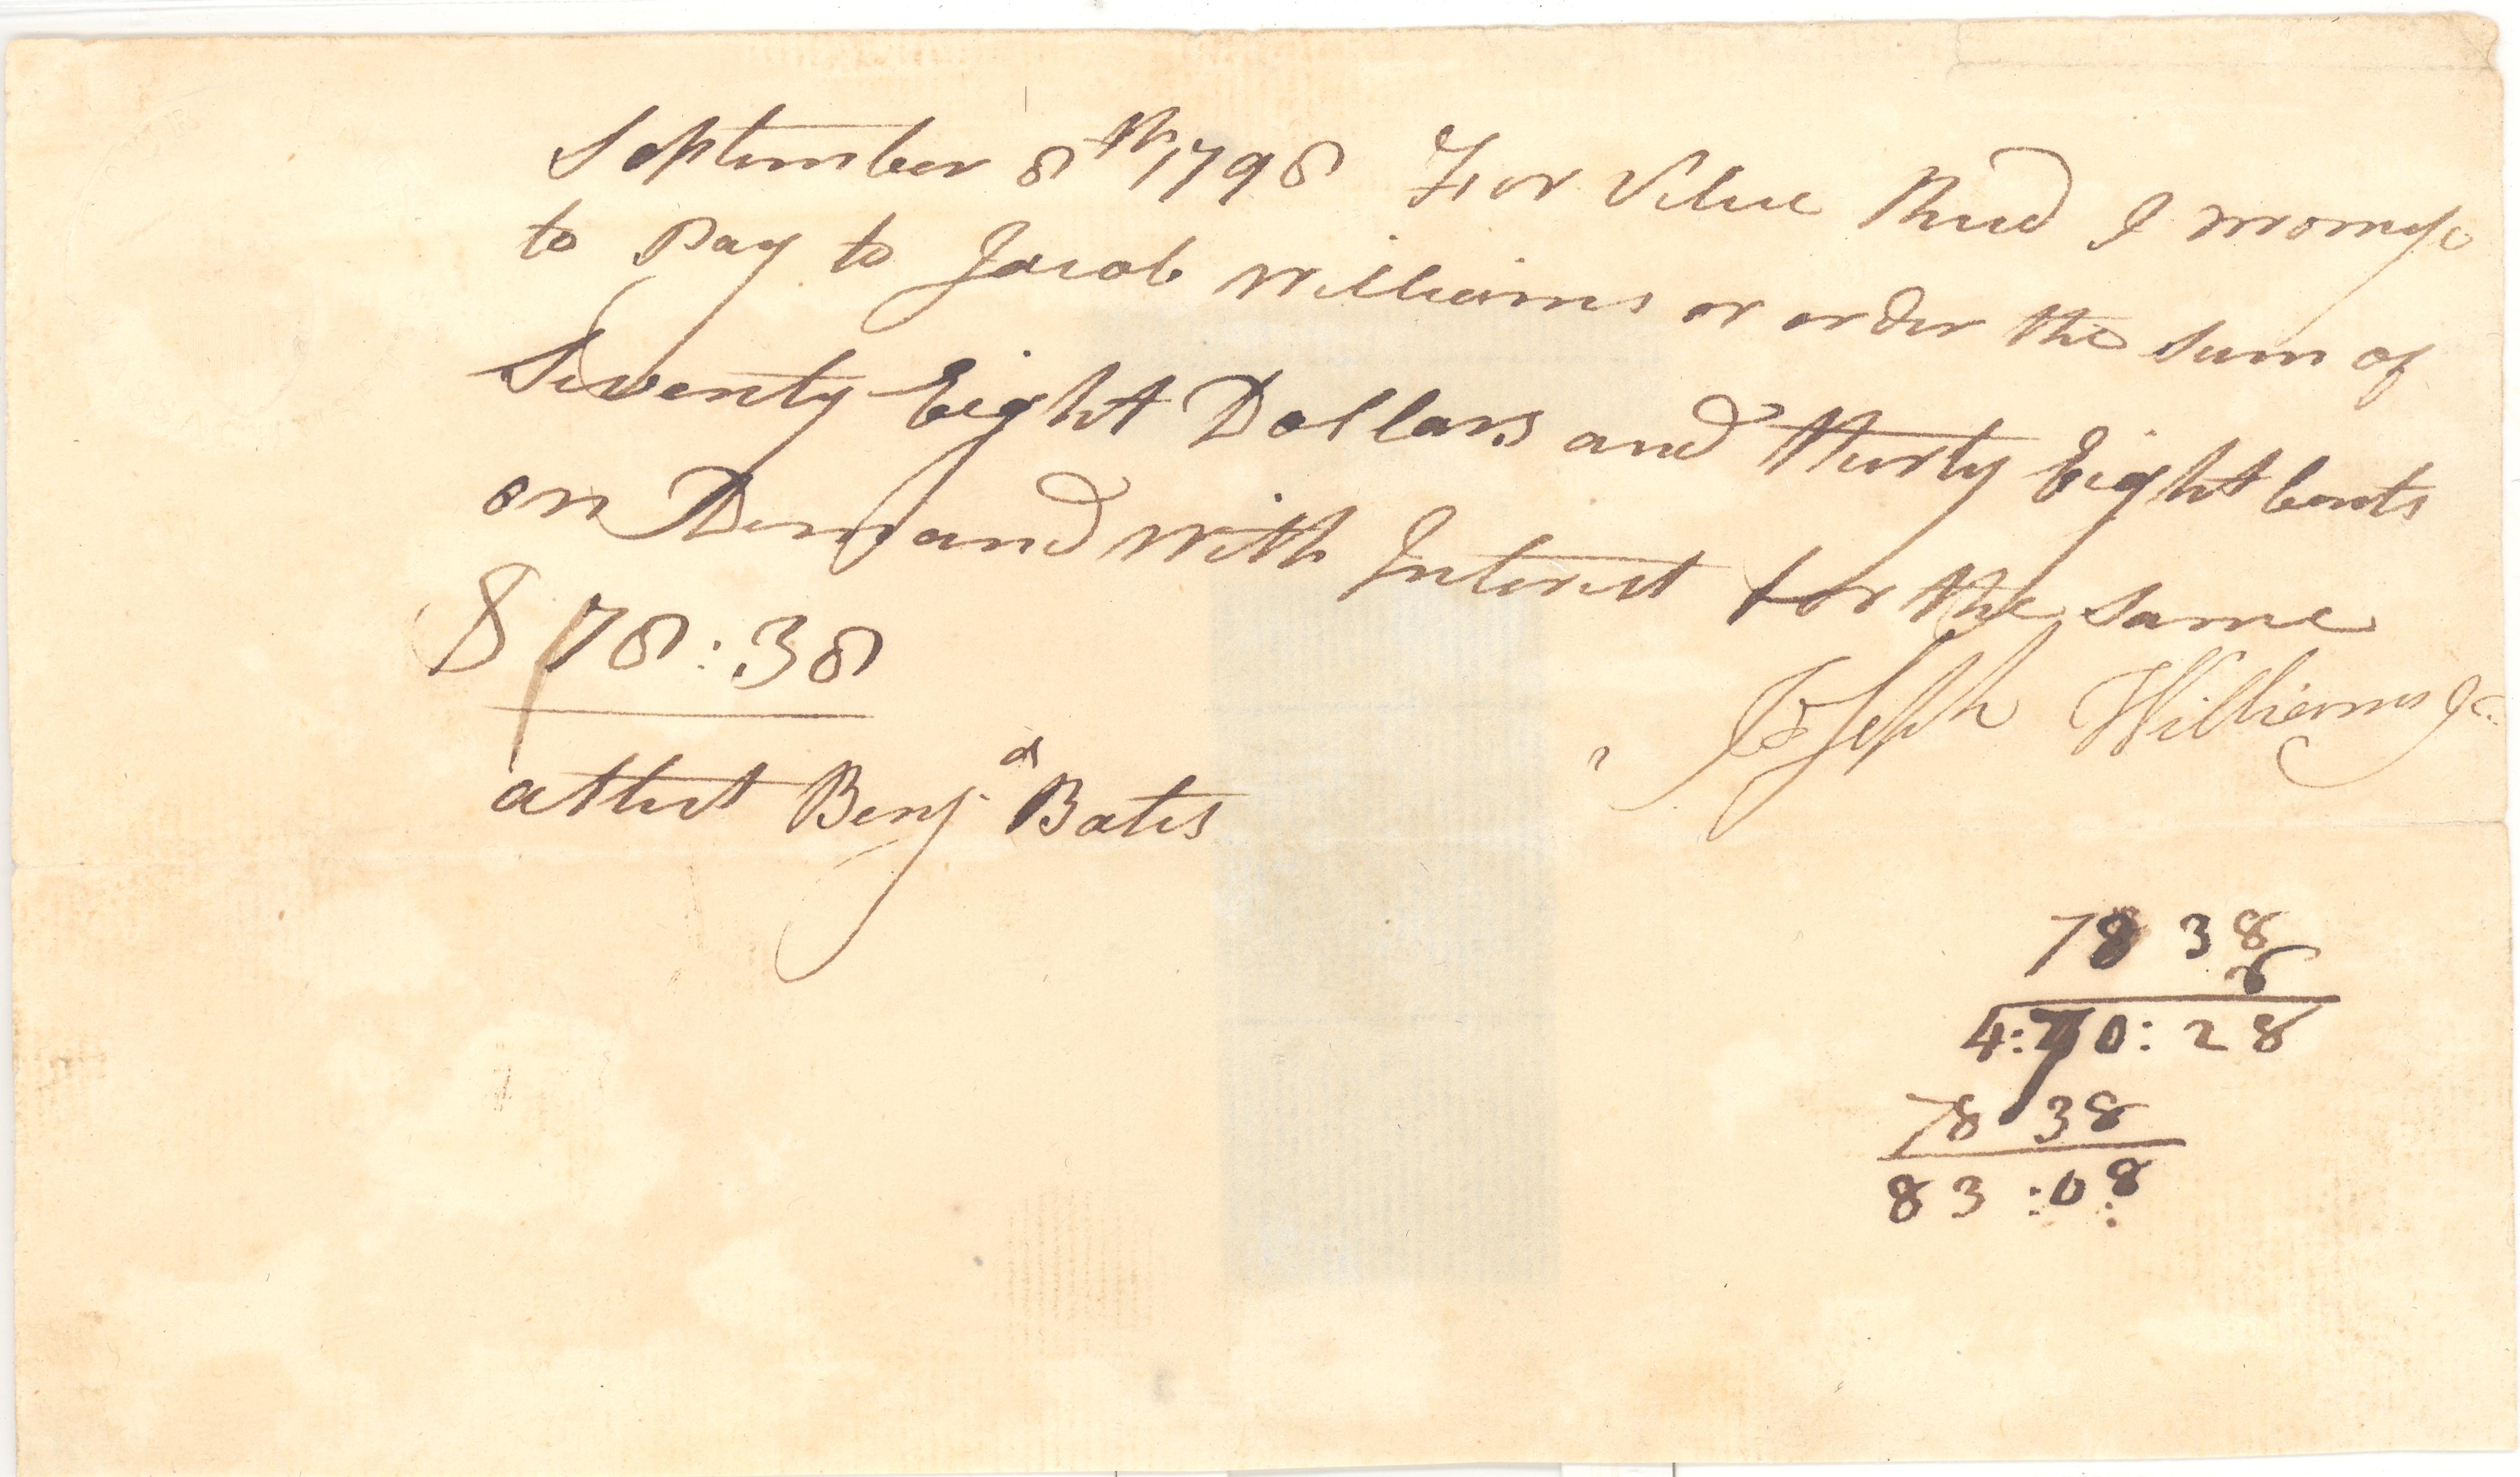 September 8th 1798 For Value Recd I promise
to Pay to Jacob Williams or order the sum of
Seventy Eight Dollars and thirty Eight Cents
on Demand with Interest for the same
$78:38
Joseph Williams Jr.
attest Benja Bates
78 38
6
4:70:28
78 38
83:08